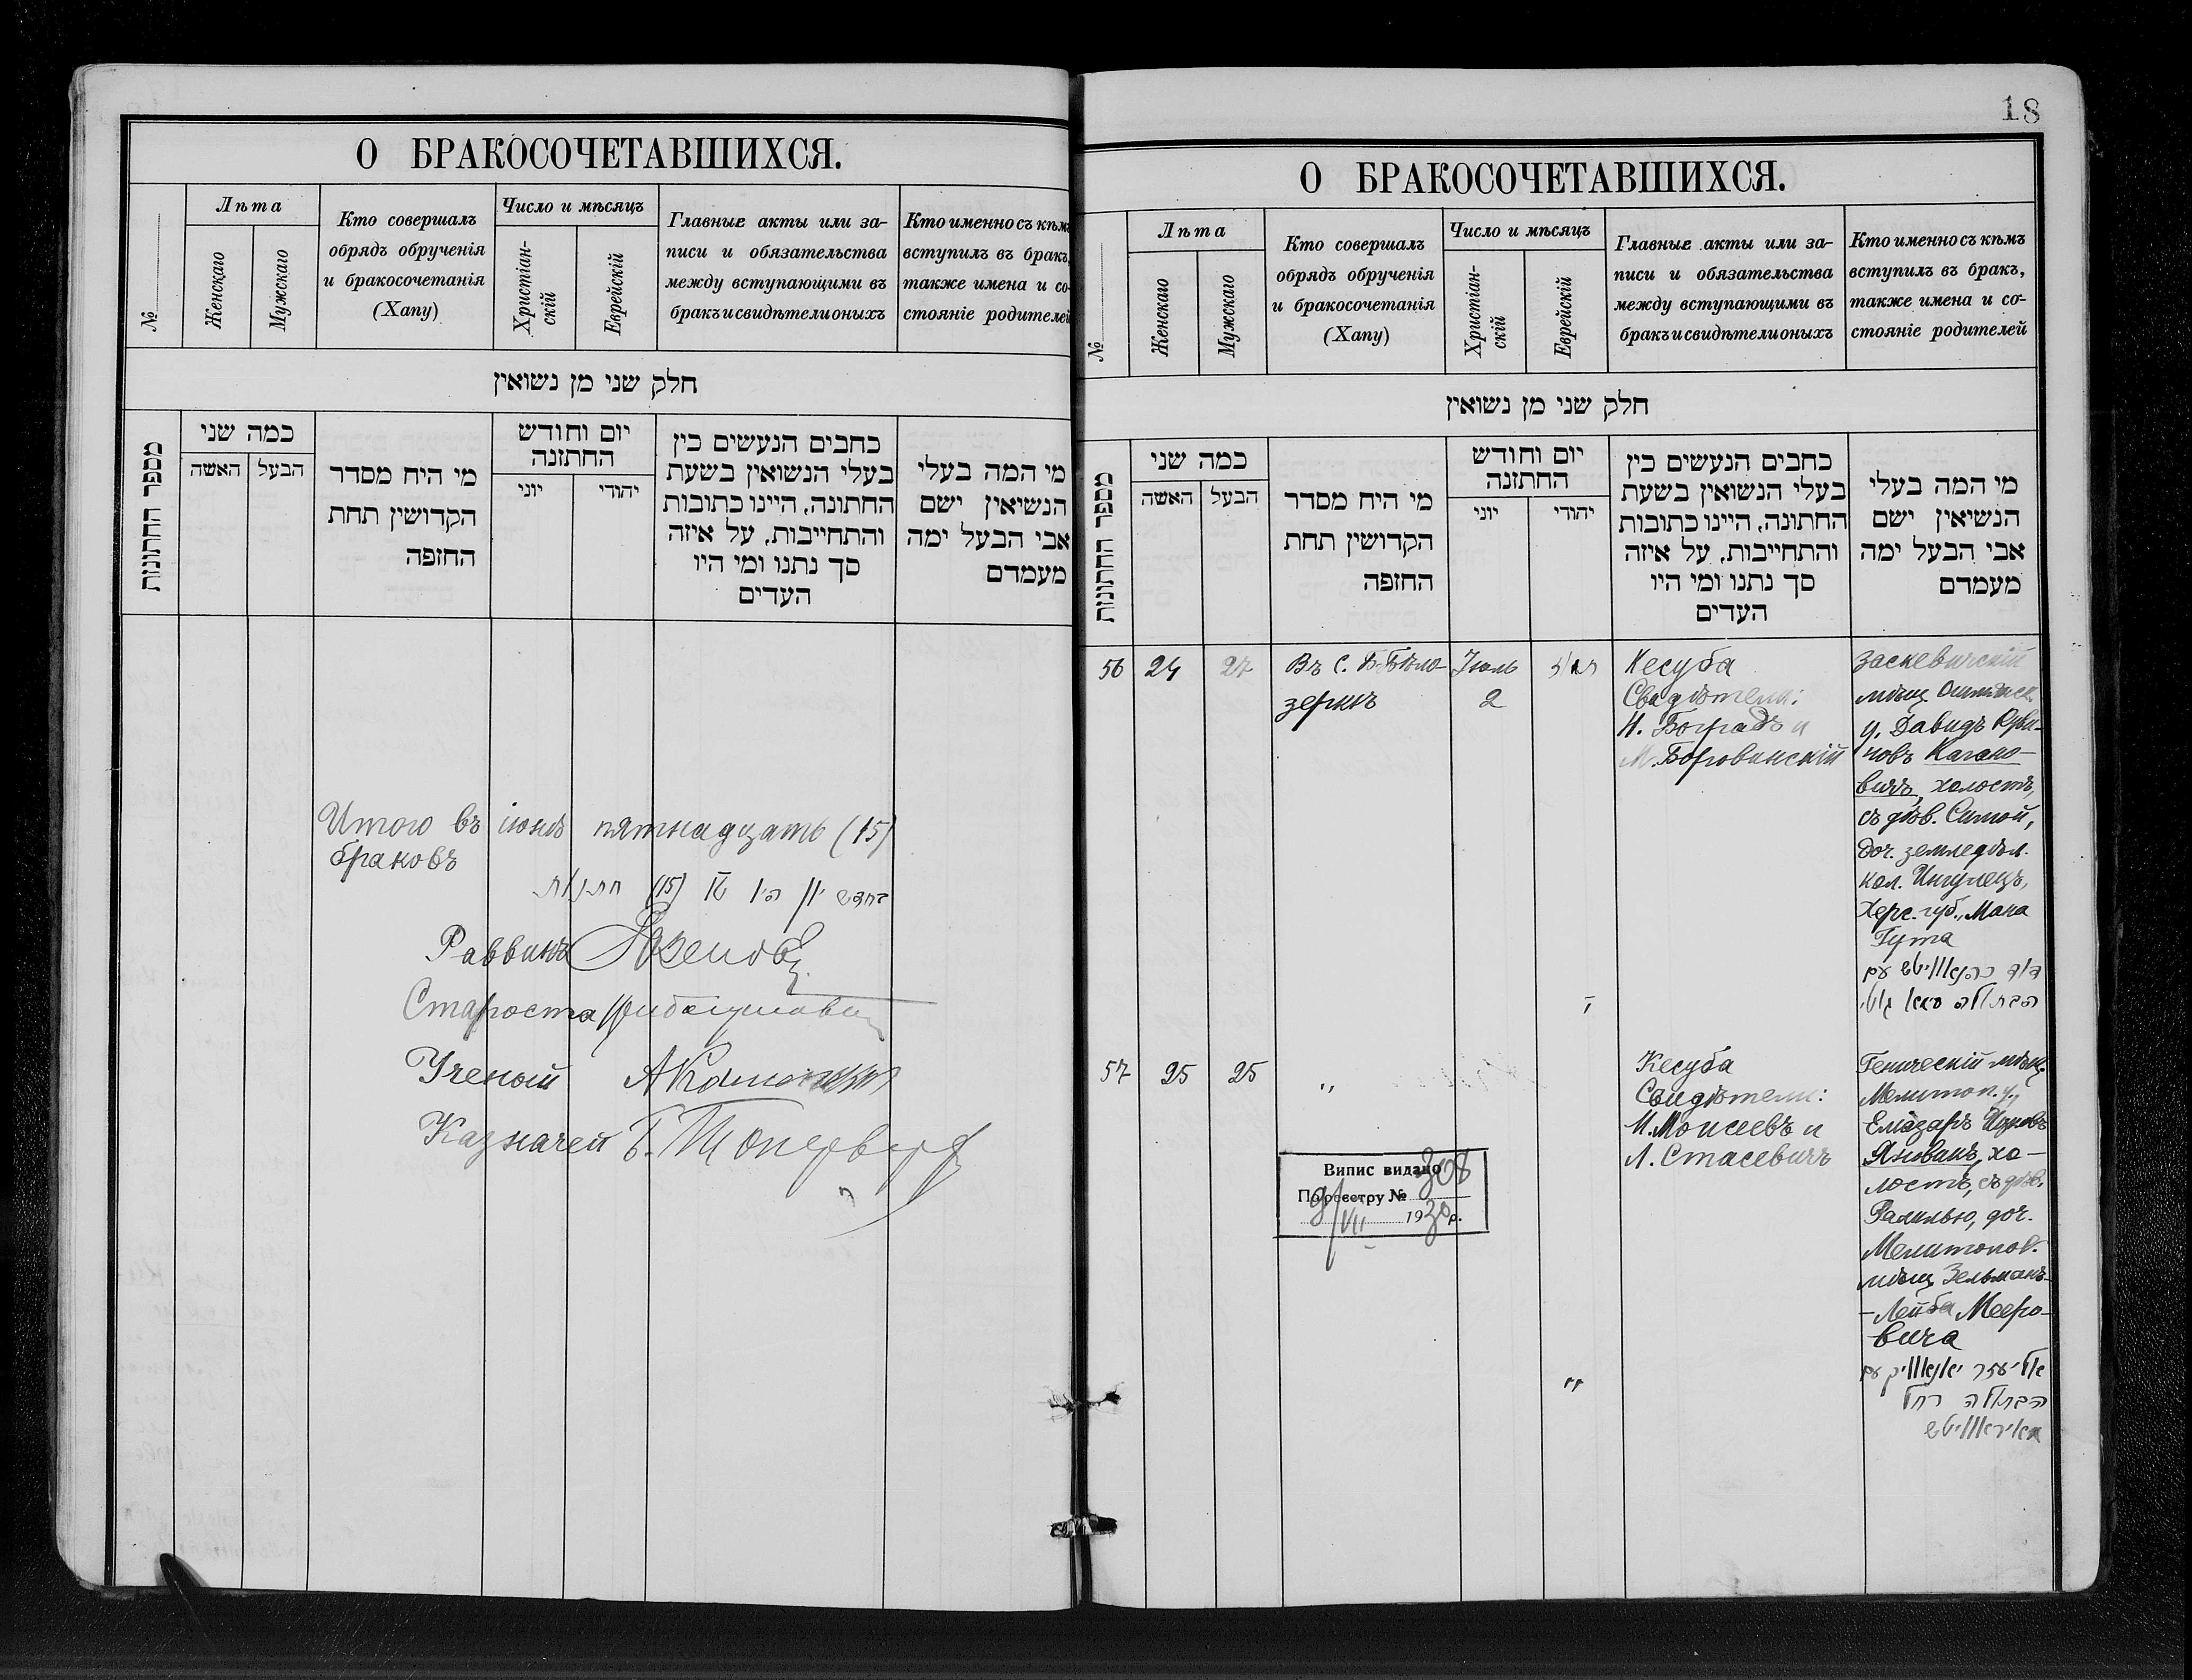 О БРАКОСОЧЕТАВШИХСЯ.
№
Лѣта
Женскаго
Мужскаго
Кто совершалъ
обрядъ обрученія
и бракосочетанія
(Хапу)
Число и мѣсяцъ
Христіан-
скій
Еврейскій
Главные акты или за-
писи и обязательства
между вступающими въ
бракъ и свидѣтели оныхъ
Кто именно съ кѣмъ
вступилъ въ бракъ,
также имена и со-
стояніе родителей
חלק שני מן נשואין
מספר החתונות
כמה שני
האשה
הבעל
מי היח מסדר
הקדושין תחת
החזפה
יום וחודש
החתזנה
יוני
יהודי
כחבים הנעשים כין
בעלי הנשואין בשעת
החתונה, היינו כתובות
והתחייבות, על איזה
סך נתנו ומי היו
העדים
מי המה בעלי
הנשיאין ישם
אבי הבעל ימה
מעמדם
Итого въ іюнѣ пятнадцать (15)
браковъ
בחדש יוני היו טו (15) חתונות
Раввинъ
Староста
Ученый
Казначей
18
О БРАКОСОЧЕТАВШИХСЯ.
№
Лѣта
Женскаго
Мужскаго
Кто совершалъ
обрядъ обрученія
и бракосочетанія
(Хапу)
Число и мѣсяцъ
Христіан-
скій
Еврейскій
Главные акты или за-
писи и обязательства
между вступающими въ
бракъ и свидѣтели оныхъ
Кто именно съ кѣмъ
вступилъ въ бракъ,
также имена и со-
стояніе родителей
חלק שני מן נשואין
מספר החתונות
כמה שני
האשה
הבעל
מי היח מסדר
הקדושין תחת
החזפה
יום וחודש
החתזנה
יוני
יהודי
כחבים הנעשים כין
בעלי הנשואין בשעת
החתונה, היינו כתובות
והתחייבות, על איזה
סך נתנו ומי היו
העדים
מי המה בעלי
הנשיאין ישם
אבי הבעל ימה
מעמדם
56
24
27
Въ с. Б-Бѣло-
зеркѣ
Іюль
2
Кесуба
Свидѣтели:
И. Боградъ и
М. Боровинскій
Заскевичскій
мѣщ. Ошмянск.
у. Давидъ Руви-
новъ Кагано-
вичъ, холостъ,
съ дѣв. Симой,
доч. земледѣл.
кол. Ингулецъ,
Херс. губ., Мана
Гута
דוד כהנאוויטש עם
הבתולה סימא גוטי
י
57
25
25
"
Кесуба
Свидѣтели:
И. Моисеевъ и
Л. Стасевичъ
Геническій мѣщ.
Мелитоп. у.,
Елазаръ Ицковъ
Яновикъ, хо-
лостъ, съ дѣв.
Рахилью, доч.
Мелитопол.
мѣщ. Зельманъ-
-Лейба Мееро-
вича
אליעזר יאנאוויק עם
הבתולה רחל
מאיראוויטש
יי
Випис видано
По реєстру № 308
9/VII 1930 р.